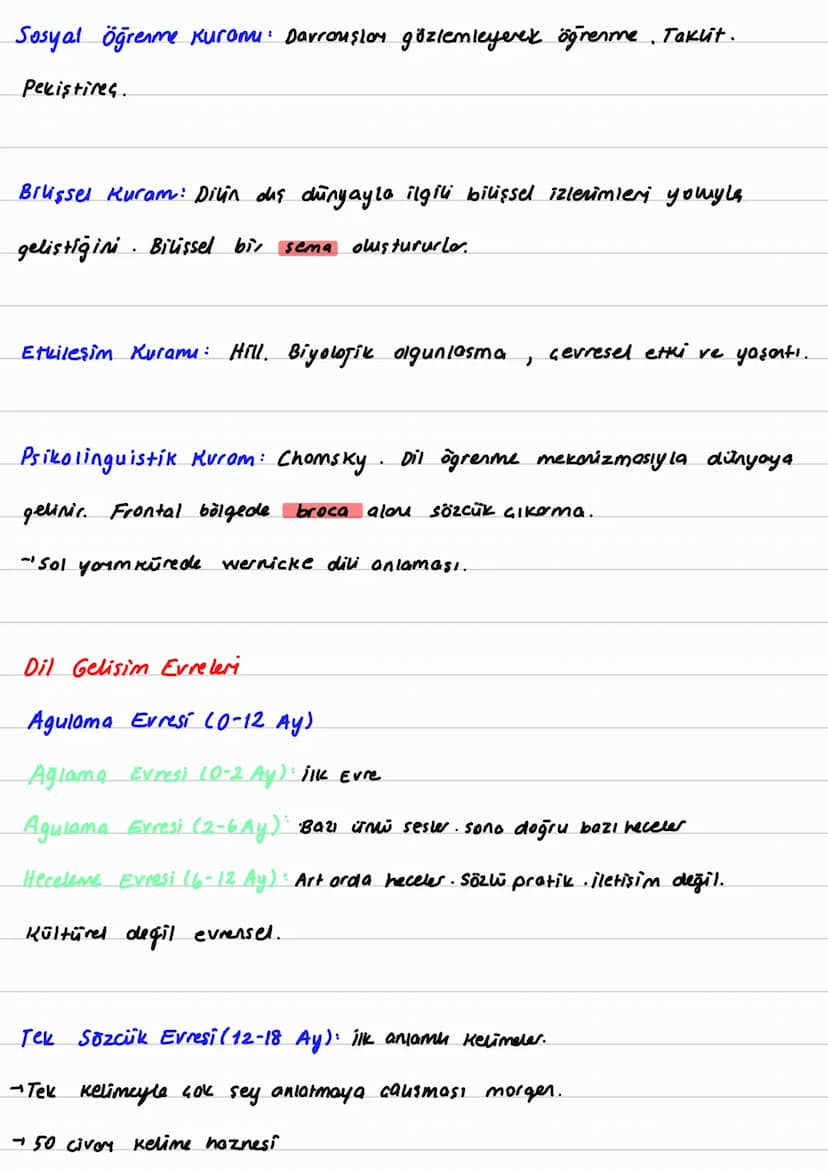 Sosyal Öğrenme Kuramı: Davranışları gözlemleyerek öğrenme. Taklit.
Pekiştireç.
Bilişsel Kuram: Dilin dış dünyayla ilgili bilişsel izlenimleri yoluyla
geliştiğini. Bilişsel bir şema oluştururlar.
Etkileşim Kuramı: Hill. Biyolojik olgunlaşma, çevresel etki ve yaşantı.
Psikolinguistik Kuram: Chomsky. Dil öğrenme mekanizmasıyla dünyaya
gelinir. Frontal bölgede broca alanı sözcük çıkarma.
→ Sol yarımkürede wernicke dili anlaması.
Dil Gelişim Evreleri
Agulama Evresi (0-12 Ay)
Ağlama Evresi (0-2 Ay): İlk Evre
Agulama Evresi (2-6 Ay): Bazı ünlü sesler. sona doğru bazı heceler
Heceleme Evresi (6-12 Ay): Art arda heceler. Sözlü pratik. iletişim değil.
Kültürel değil evrensel.
Tek Sözcük Evresi (12-18 Ay): İlk anlamlı kelimeler.
→ Tek kelimeyle çok şey anlatmaya çalışması morgen.
→ 50 civarı kelime haznesi